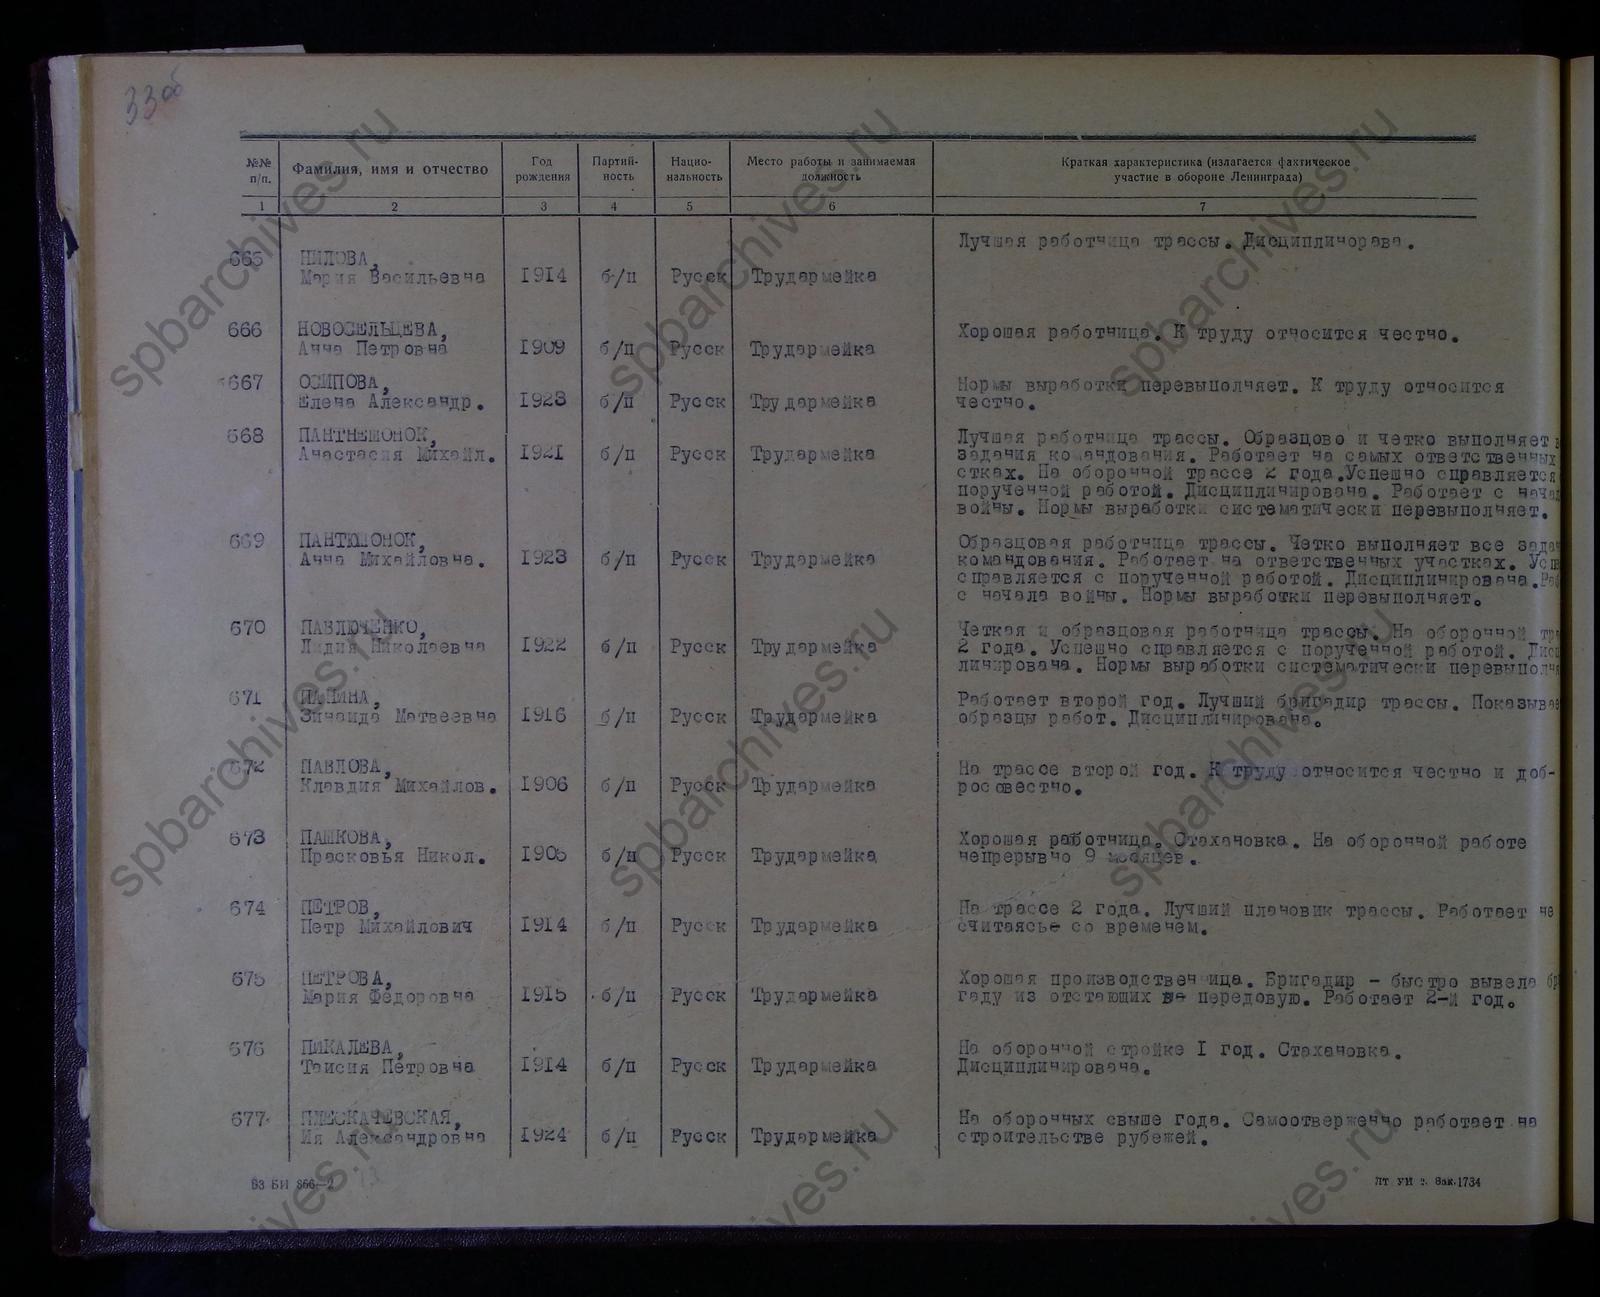 33об
№№ п/п.
Фамилия, имя и отчество
Год рождения
Партий-
ность
Нацио-
нальность
Место работы и занимаемая
должность
Краткая характеристика (излагается фактическое
участие в обороне Ленинграда)
1 2 3 4 5 6 7
Лучшая работница трассы. Дисциплинорава.
665 НИЛОВА,
Мария Васильевна 1914 б/п Русск Трудармейка
666 НОВОСЕЛЬЦЕВА, Хорошая работница. К труду относится честно.
Анна Петровна 1909 б/п Русск Трудармейка
667 ОСИПОВА, Нормы выработки перевыполняет. К труду относится
Елена Александр. 1923 б/п Русск Трудармейка честно.
668 ПАНТНЕШОНОК, Лучшая работница трассы. Образцово и четко выполняет
Анастасия Михайл. 1921 б/п Русск Трудармейка задания командования. Работает на самых ответственных
стках. На оборонной трассе 2 года.Успешно справляется
порученной работой. Дисциплинирована. Работает с нача
войны. Нормы выработки систематически перевыполняет.
669 ПАНТЮШОНОК, Образцовая работница трассы. Четко выполняет все зада
Анна Михайловна. 1923 б/п Русск Трудармейка командования. Работает на ответственных участках. Усп
справляется с порученной работой. Дисциплинирована.Ра
с начала войны. Нормы выработки перевыполняет.
670 ПАВЛЮЧЕНКО, Четкая и образцовая работница трассы. На оборонной тр
Лидия Николаевна 1922 б/п Русск Трудармейка 2 года. Успешно справляется с порученной работой. Дисц
линирована. Нормы выработки систематически перевыполня
671 ПАНИНА, Работает второй год. Лучший бригадир трассы. Показывае
Зинаида Матвеевна 1916 б/п Русск Трудармейка образцы работ. Дисциплинирована.
672 ПАВЛОВА, На трассе второй год. К труду относится честно и доб-
Клавдия Михайлов. 1906 б/п Русск Трудармейка росовестно.
673 ПАШКОВА, Хорошая работница. Стахановка. На оборонной работе
Прасковья Никол. 1905 б/п Русск Трудармейка непрерывно 9 месяцев.
674 ПЕТРОВ, На трассе 2 года. Лучший плановик трассы. Работает не
Петр Михайлович 1914 б/п Русск Трудармейка считаясье со временем.
675 ПЕТРОВА, Хорошая производственница. Бригадир - быстро вывела бр
Мария Федоровна 1915 б/п Русск Трудармейка гаду из отстающих на передовую. Работает 2-й год.
676 ПИКАЛЕВА, На оборонной стройке I год. Стахановка.
Таисия Петровна 1914 б/п Русск Трудармейка Дисциплинирована.
677 ПЛЕСКАЧЕВСКАЯ, На оборонных свыше года. Самоотверженно работает на
Ия Александровна 1924 б/п Русск Трудармейка строительстве рубежей.
ВЗ БИ 866—2
ЛТ УИ г. Зак.1734
spbarchives.ru
spbarchives.ru
spbarchives.ru
spbarchives.ru
spbarchives.ru
spbarchives.ru